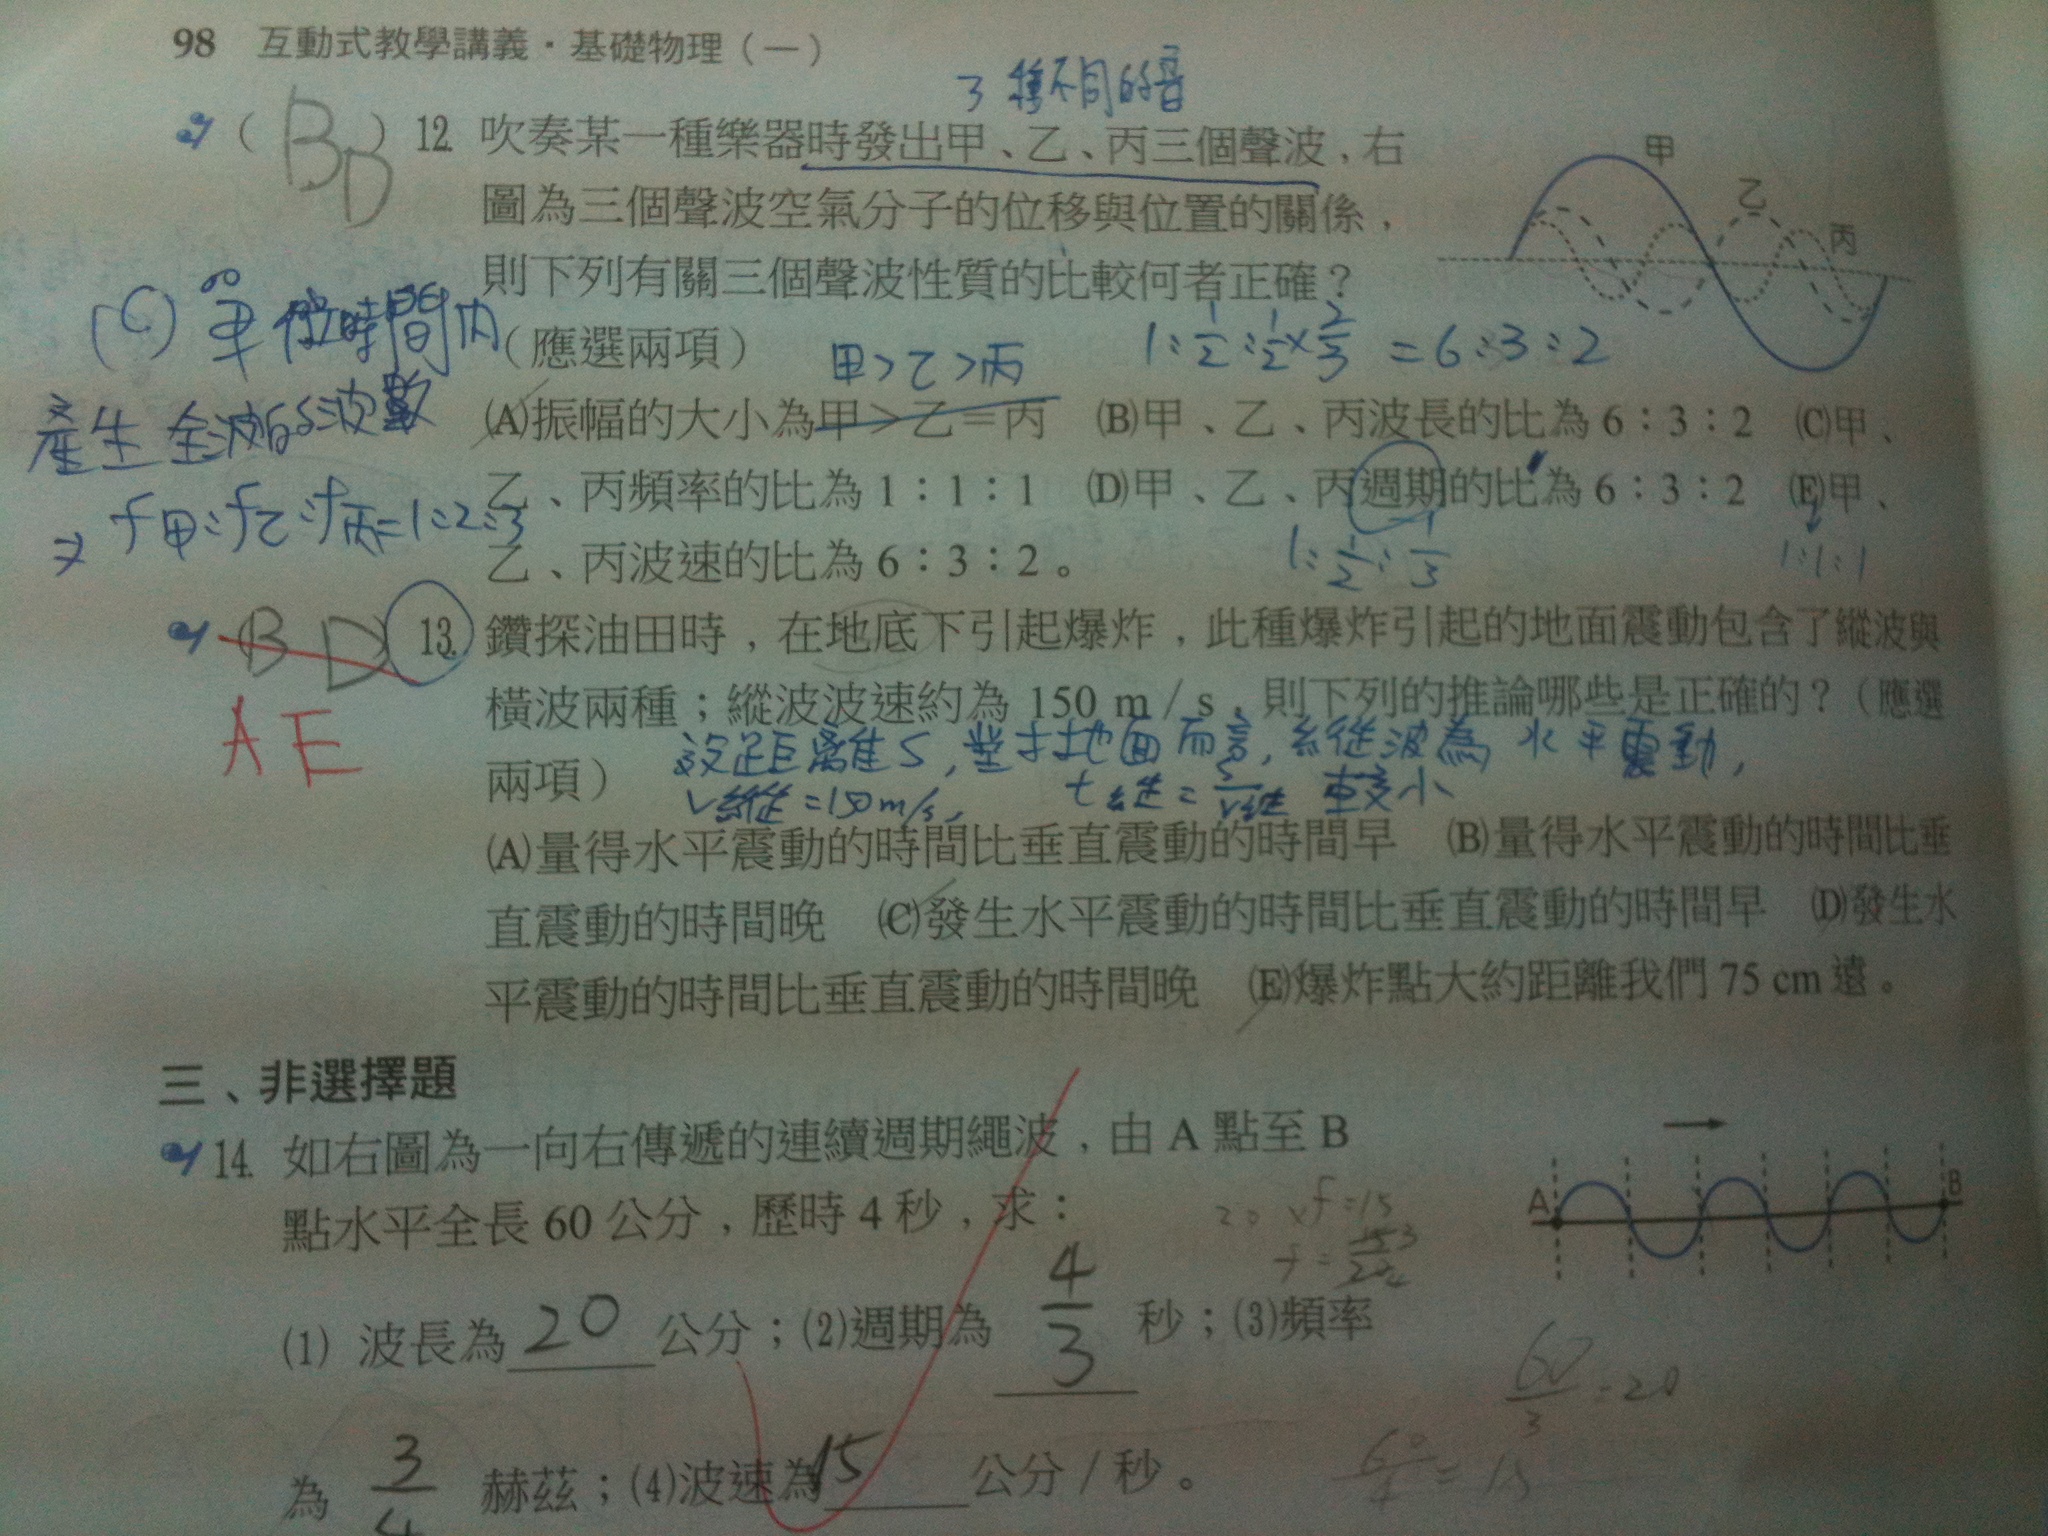 98 互動式教學講義・基礎物理(一)
3種不同的音
( BD ) 12. 吹奏某一種樂器時發出甲、乙、丙三個聲波，右
圖為三個聲波空氣分子的位移與位置的關係，
則下列有關三個聲波性質的比較何者正確？
(應選兩項)
甲
乙
丙
甲>乙>丙
1:1/2:1/2×2/3 = 6:3:2
(A)振幅的大小為甲>乙=丙 (B)甲、乙、丙波長的比為6:3:2 (C)甲、
乙、丙頻率的比為1:1:1 (D)甲、乙、丙週期的比為6:3:2 (E)甲、
乙、丙波速的比為6:3:2。
1:1/2:1/3
1:1:1
(C) 單位時間內
產生全波的波數
f甲:f乙:f丙=1:2:3
B D
A E
13. 鑽探油田時，在地底下引起爆炸，此種爆炸引起的地面震動包含了縱波與
橫波兩種；縱波波速約為150 m/s，則下列的推論哪些是正確的？(應選
兩項)
設距離S,對地面而言,縱波為水平震動,
v縱=150m/s, t縱=S/v縱 較小
(A)量得水平震動的時間比垂直震動的時間早 (B)量得水平震動的時間比垂
直震動的時間晚 (C)發生水平震動的時間比垂直震動的時間早 (D)發生水
平震動的時間比垂直震動的時間晚 (E)爆炸點大約距離我們75 cm遠。
三、非選擇題
14. 如右圖為一向右傳遞的連續週期繩波，由A點至B
點水平全長60公分，歷時4秒，求：
(1) 波長為 20 公分；(2)週期為 4/3 秒；(3)頻率
為 3/4 赫茲；(4)波速為 15 公分/秒。
A
B
20 × f = 15
60/3 = 20
60/4 = 15